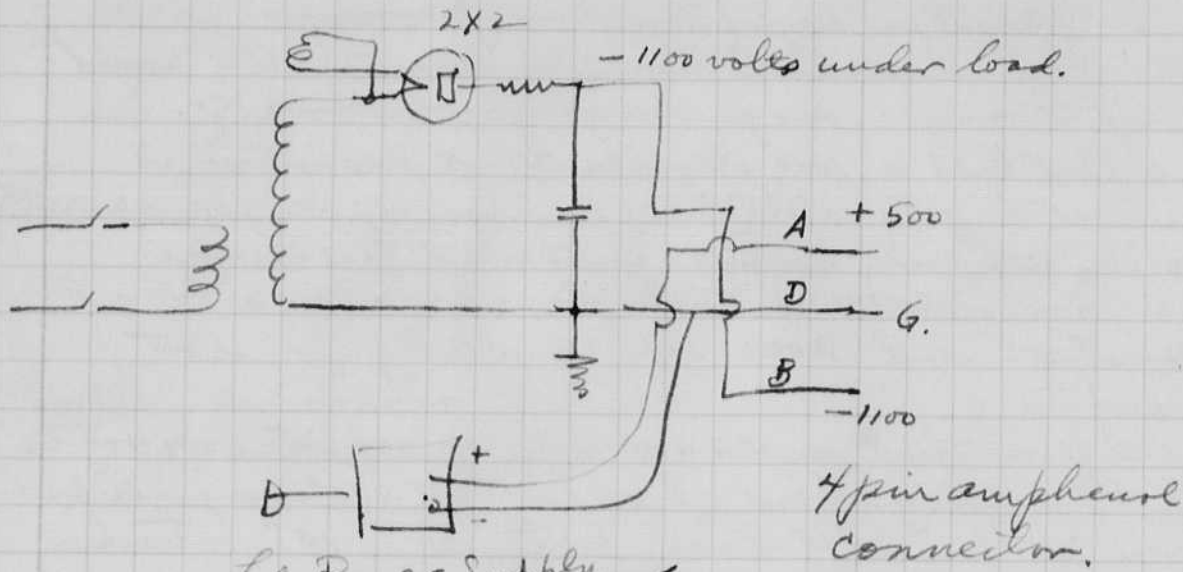 2X2
-1100 volts under load.
A +500
D G.
B
-1100
+
-
4 pin amphenol
connector.
Supply